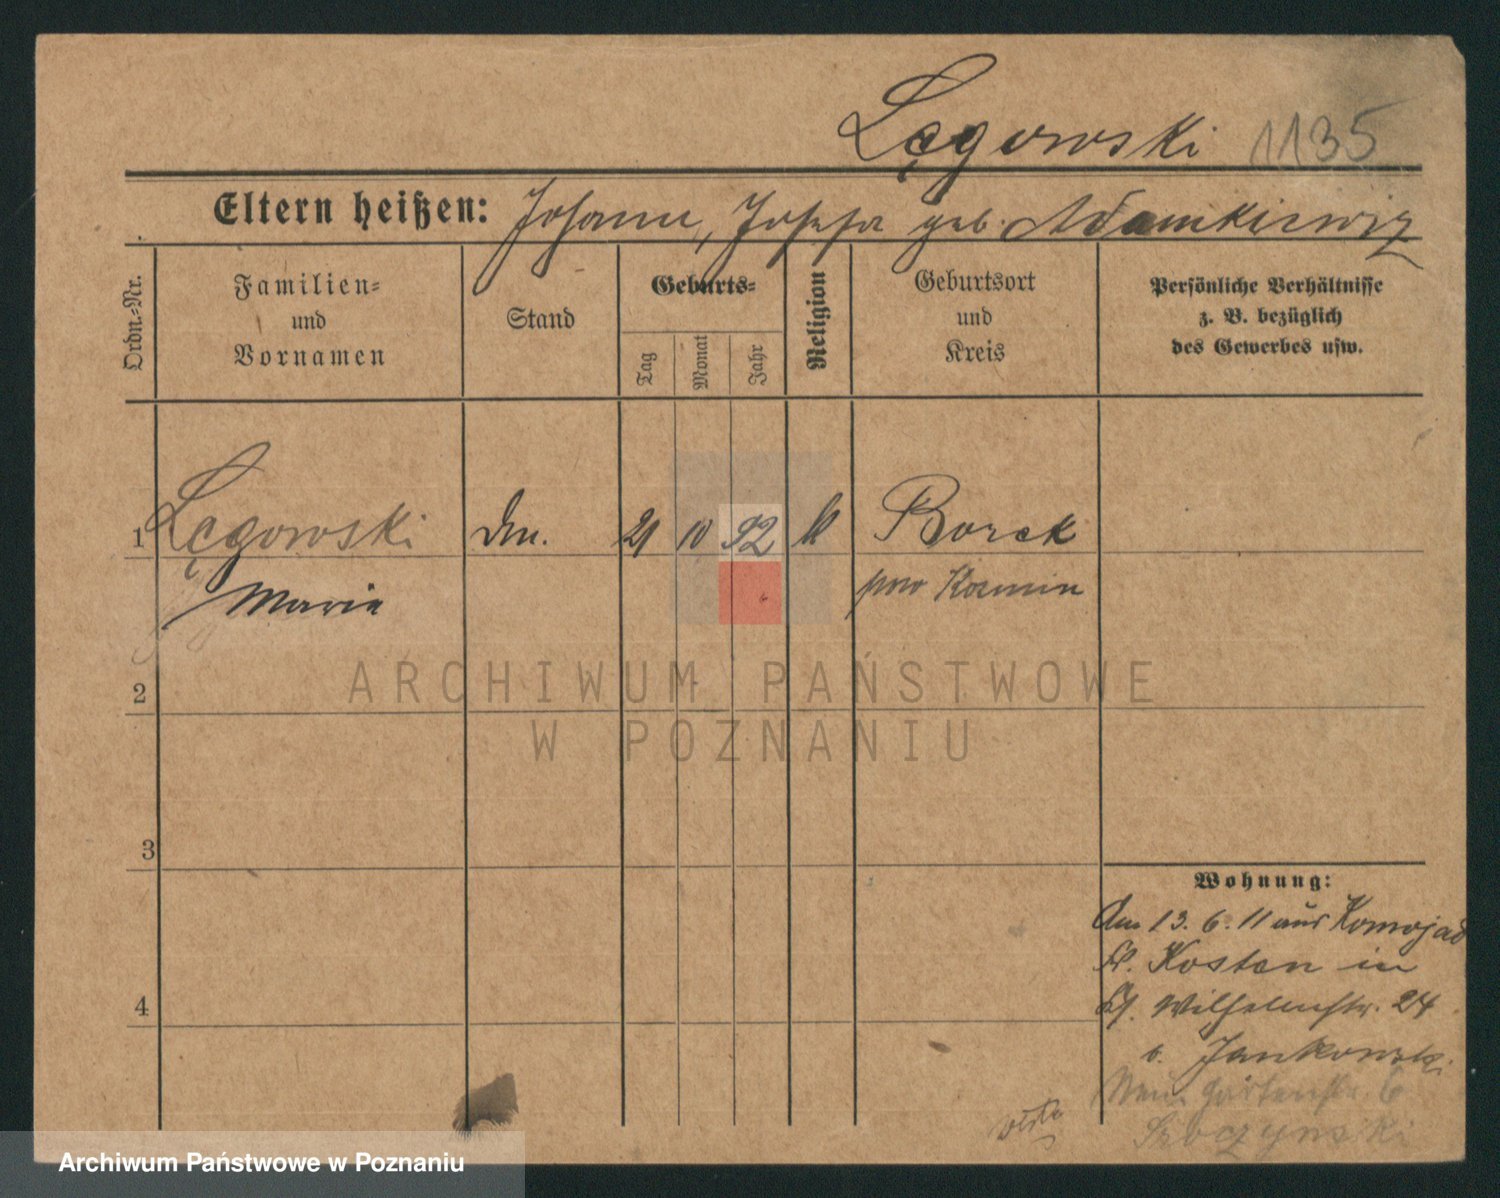 Lęgowski 1135
Eltern heißen: Johann, Josefa geb. Adamkiewicz
Ordn.-Nr.
Familien=
und
Vornamen
Stand
Geburts=
Tag
Monat
Jahr
Religion
Geburtsort
und
Kreis
Persönliche Verhältnisse
z. B. bezüglich
des Gewerbes usw.
1 Lęgowski 21 10 92 k Borek
Marie Kosmin
2
ARCHIWUM PAŃSTWOWE
W POZNANIU
3
4
Wohnung:
Am 13. 6. 11 aus
Kr. Kosten in
Wilhelmstr. 24
b. Jankowski
Gartenstr. 6
Archiwum Państwowe w Poznaniu